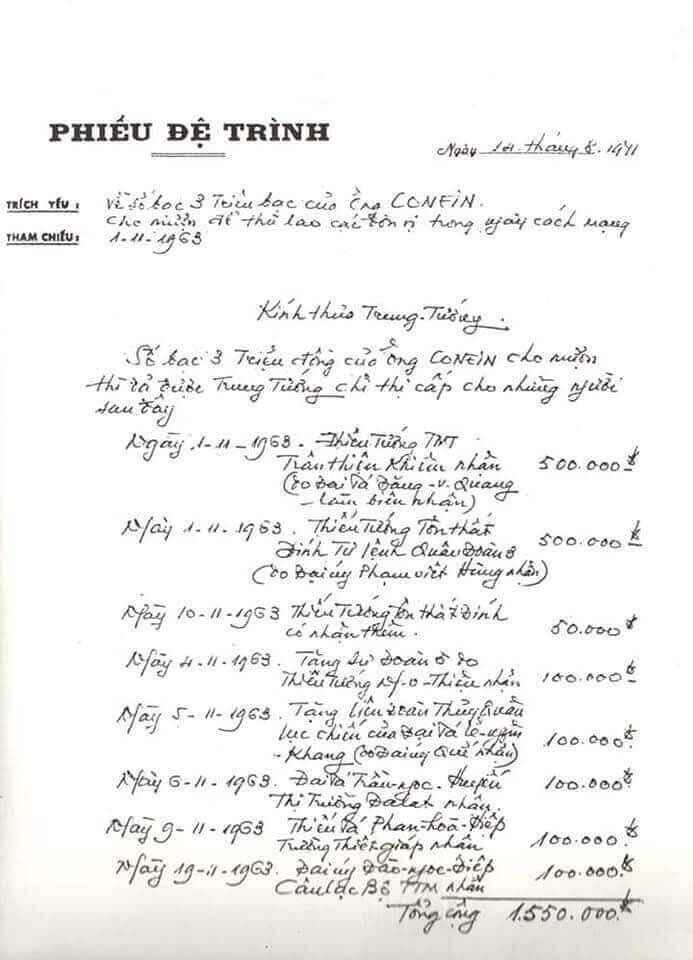 PHIẾU ĐỆ TRÌNH
Ngày tháng 8. 1971
TRÍCH YẾU: Về số bạc 3 Triệu bạc của Ông CONEIN.
cho mượn để thù lao các đơn vị trong ngày cách mạng
THAM CHIẾU: 1-11-1963
Kính thưa Trung-Tướng.
Số bạc 3 Triệu đồng của Ông CONEIN cho mượn
thì đã được Trung Tướng chỉ thị cấp cho những người
sau đây
Ngày 1-11-1963. Thiếu Tướng TMT
Trần thiện Khiêm nhận 500.000$
(do Đại Tá Đặng-v. Quang
làm biên nhận)
Ngày 1-11-1963. Thiếu Tướng Tôn thất
Đính Tư lệnh Quân Đoàn 3 500.000$
(do Đại úy Phạm viết Hùng nhận)
Ngày 10-11-1963 Thiếu Tướng Tôn thất Đính
có nhận thêm. 50.000$
Ngày 4-11-1963. Tặng Sư Đoàn 5 do
Thiếu Tướng Ng-v-Thiệu nhận 100.000$
Ngày 5-11-1963. Tặng liên đoàn Thủy Quân
lục chiến của Đại Tá lê-nguyên
-Khang (do Đại úy Quế nhận) 100.000$
Ngày 6-11-1963. Đại Tá Trần-ngọc-Huyến
Thị Trưởng Đalat nhận. 100.000$
Ngày 9-11-1963 Thiếu Tá Phan-hoà-Hiệp
Trường Thiết giáp nhận 100.000$
Ngày 19-11-1963. Đại úy Đào-ngọc-Điệp
Câu lạc Bộ TTM nhận 100.000$
Tổng cộng 1.550.000$